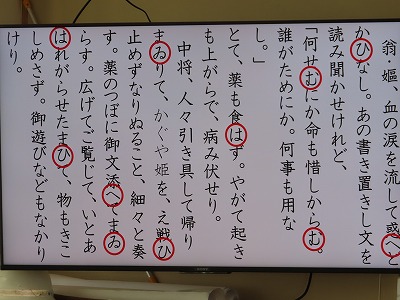 翁・嫗、血の涙を流して惑へど
かひなし。あの書き置きし文を
読み聞かせけれど、
「何せむにか命も惜しからむ。
誰がためにか。何事も用な
し。」
とて、薬も食はず。やがて起き
も上がらで、病み伏せり。
中将、人々引き具して帰り
まゐりて、かぐや姫を、え戦ひ
止めずなりぬること、細々と奏
す。薬のつぼに御文添へてまゐ
らす。広げてご覧じて、いとあ
はれがらせたまひて、物もきこ
しめさず。御遊びなどもなかり
けり。